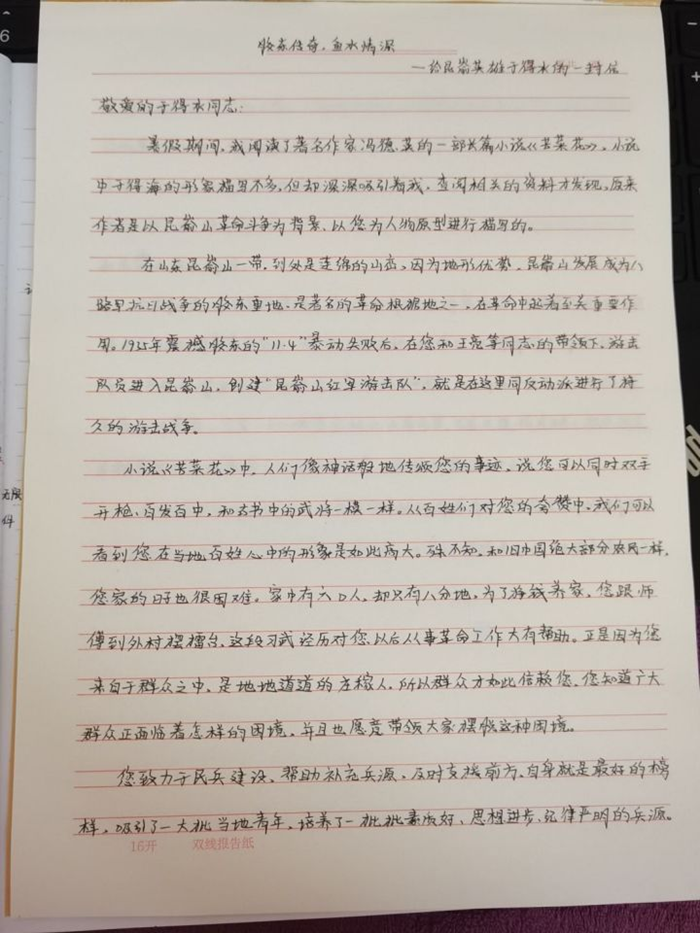 胶东传奇,鱼水情深
—给昆嵛英雄于得水的一封信
敬爱的于得水同志:
暑假期间,我阅读了著名作家冯德英的一部长篇小说《苦菜花》,小说
中于得海的形象描写不多,但却深深吸引着我,查阅相关的资料才发现,原来
作者是以昆嵛山革命斗争为背景、以您为人物原型进行描写的。
在山东昆嵛山一带,到处是连绵的山峦,因为地形优势,昆嵛山发展成为八
路军抗日战争的胶东重地,是著名的革命根据地之一,在革命中起着至关重要作
用。1935年震撼胶东的"11·4"暴动失败后,在您和王亮等同志的带领下,游击
队员进入昆嵛山,创建"昆嵛山红军游击队",就是在这里同反动派进行了持
久的游击战争。
小说《苦菜花》中,人们像神话般地传颂您的事迹,说您可以同时双手
开枪、百发百中,和古书中的武将一模一样。从百姓们对您的夸赞中,我们可以
看到您在当地百姓心中的形象是如此高大。殊不知,和旧中国绝大部分农民一样,
您家的日子也很困难。家中有六口人,却只有八分地,为了挣钱养家,您跟师
傅到外村摆擂台,这段习武经历对您以后从事革命工作大有帮助。正是因为您
来自于群众之中,是地地道道的庄稼人,所以群众才如此信赖您,您知道广大
群众正面临着怎样的困境,并且也愿意带领大家摆脱这种困境。
您致力于民兵建设、帮助补充兵源,及时支援前方,自身就是最好的榜
样,吸引了一大批当地青年,培养了一批批素质好、思想进步、纪律严明的兵源。
16开 双线报告纸
无限
件